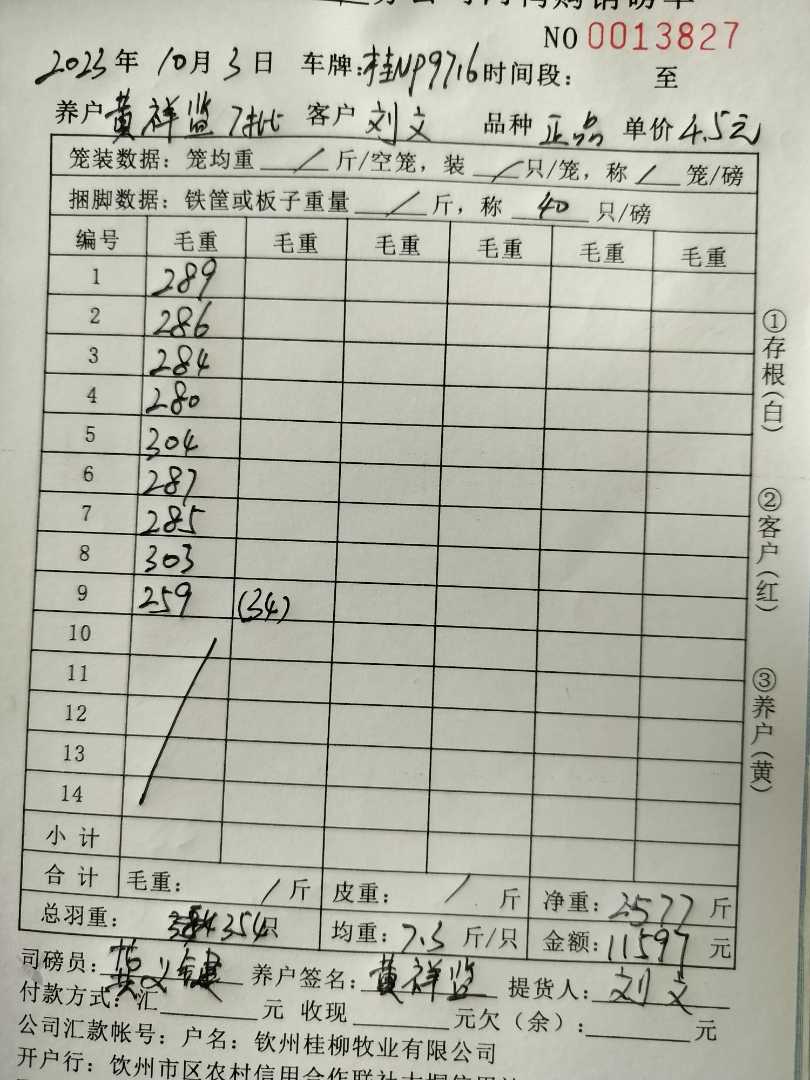 NO 0013827
2023年 10月 3日 车牌:桂NP9716 时间段: 至
养户 黄祥监 7批 客户 刘文 品种 正品 单价 4.5元
笼装数据: 笼均重 / 斤/空笼, 装 / 只/笼, 称 / 笼/磅
捆脚数据: 铁筐或板子重量 / 斤, 称 40 只/磅
编号 毛重 毛重 毛重 毛重 毛重 毛重
1 289
2 286
3 284
4 280
5 304
6 287
7 285
8 303
9 259 (34)
10
11
12
13
14
小计
合计 毛重: / 斤 皮重: / 斤 净重: 2577 斤
总羽重: 354只 均重: 7.3 斤/只 金额: 11597 元
司磅员: 养户签名: 黄祥监 提货人: 刘文
付款方式: 汇 元 收现 元欠(余): 元
公司汇款帐号: 户名: 钦州桂柳牧业有限公司
开户行: 钦州市区农村信用合作联社
①存根(白)
②客户(红)
③养户(黄)